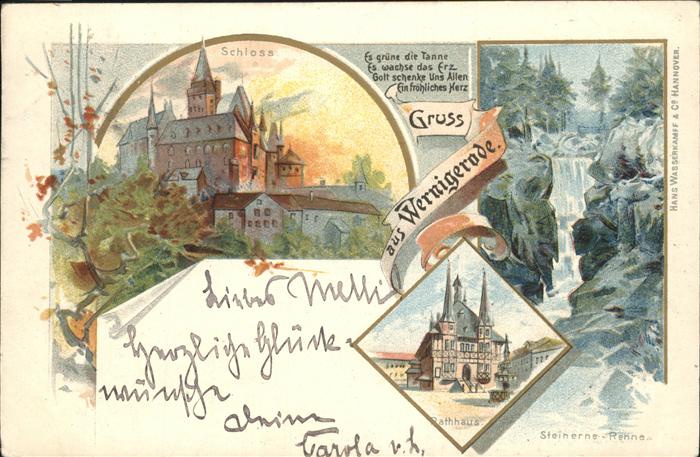 Schloss
Es grüne die Tanne
Es wachse das Erz
Gott schenke Uns Allen
Ein fröhliches Herz
Gruss
aus Wernigerode.
HANS WASSERKAMPF & Co HANNOVER.
Liebes Melli
Herzliche Glück-
wünsche
Deine
Carola v. L.
Rathhaus.
Steinerne-Renne.